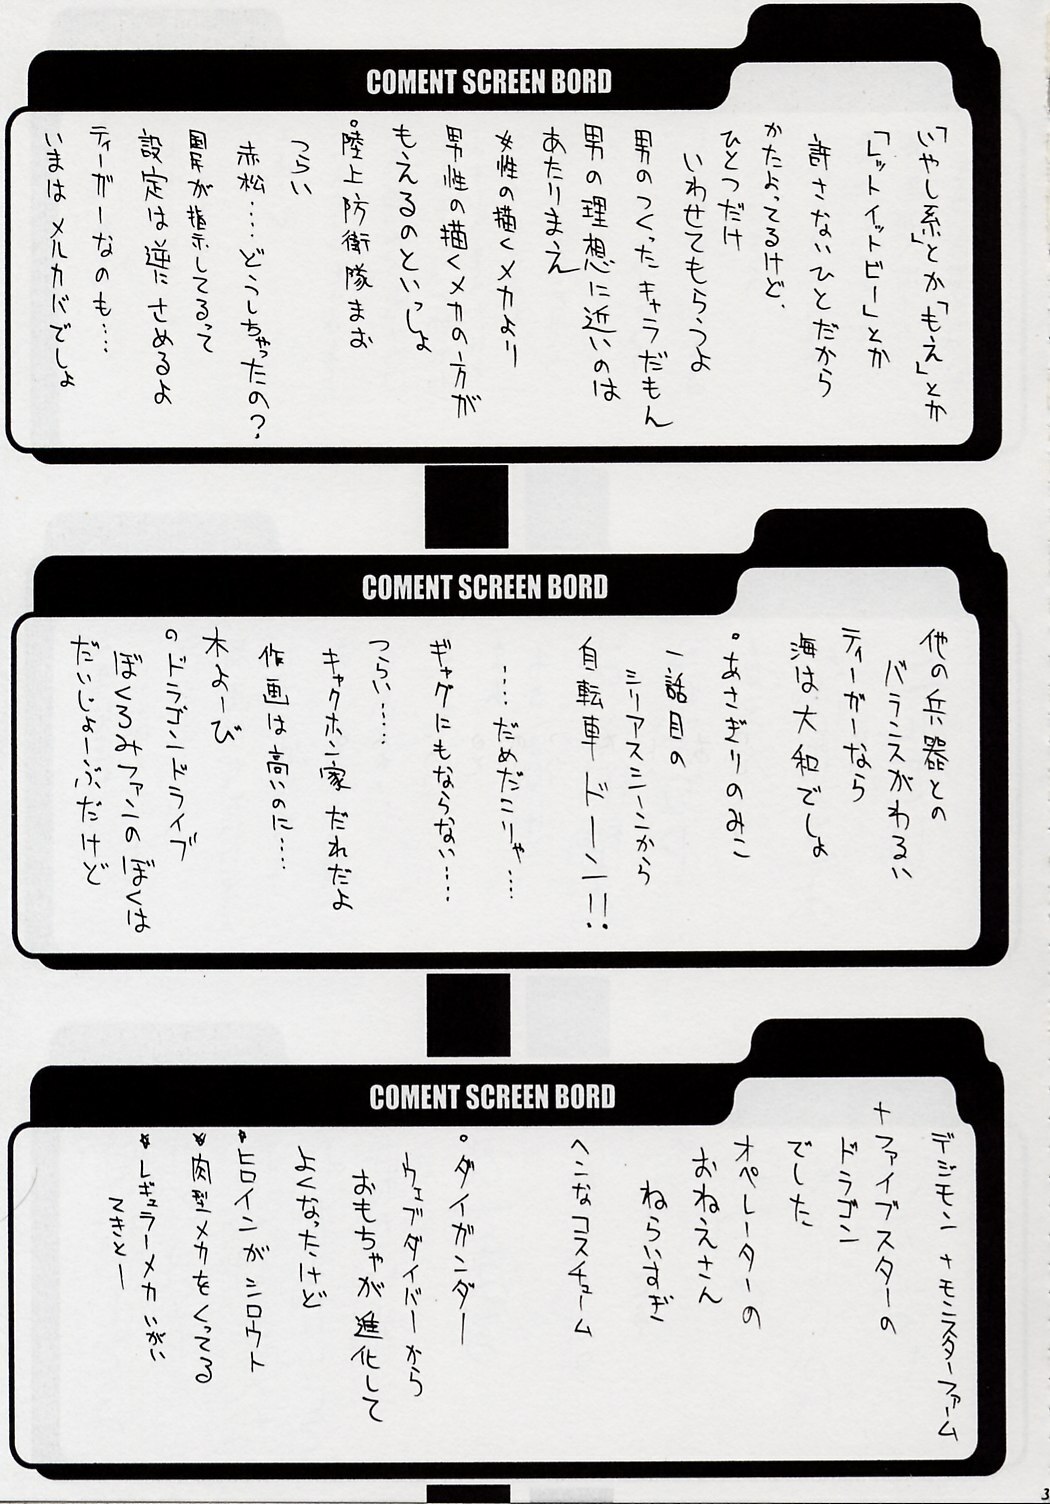 COMENT SCREEN BORD
「いやし系」とか「もえ」とか
「レットイットビー」とか
許さないひとだから
かたよってるけど、
ひとつだけ
いわせてもらうよ
男のつくったキャラだもん
男の理想に近いのは
あたりまえ
女性の描くメカより
男性の描くメカの方が
もえるのといっしょ
・陸上防衛隊まお
つらい
赤松‥‥どうしちゃったの?
園が指示してるって
設定は逆にさめるよ
ティーガーなのも‥‥
いまはメルカバでしょ
COMENT SCREEN BORD
他の兵器との
バランスがわるい
ティーガーなら
海は大和でしょ
・あさぎりのみこ
一話目の
シリアスシーンから
自転車ドーン!!
‥‥だめだこりゃ‥‥
ギャグにもならない‥‥
つらい‥‥
キャクホン家だれだよ
作画は高いのに‥‥
木よーび
のドラゴンドライブ
ぼくろみファンのぼくは
だいじょーぶだけど
COMENT SCREEN BORD
デジモン+モンスターファーム
+ファイブスターの
ドラゴン
でした
オペレーターの
おねえさん
ねらいすぎ
ヘンなコスチューム
・ダイガンダー
ウェブダイバーから
おもちゃが進化して
よくなったけど
★ヒロインがシロウト
★肉型メカをくってる
★レギュラーメカいがい
てきとー
3